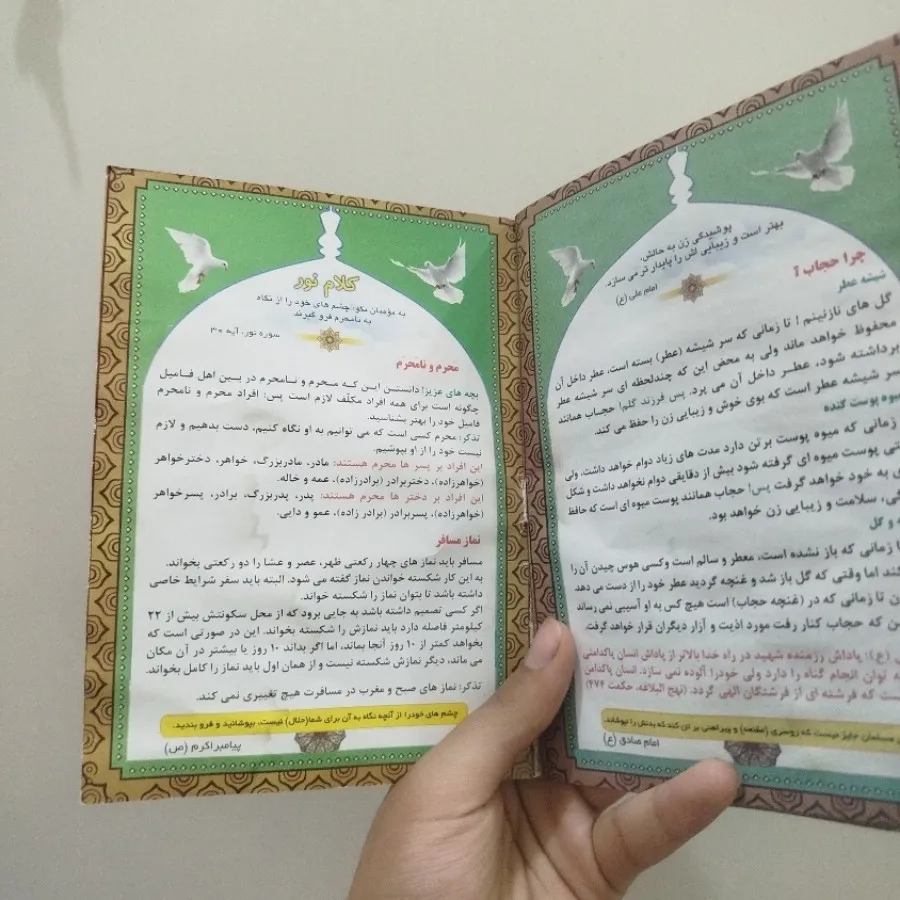 کلام نور
به مؤمنان بگو: چشم های خود را از نگاه
به نامحرم فرو گیرند
سوره نور، آیه ۳۰
محرم و نامحرم
بچه های عزیز! دانستن این که محرم و نامحرم در بین اهل فامیل
چگونه است برای همه افراد مکلّف لازم است پس: افراد محرم و نامحرم
فامیل خود را بهتر بشناسید.
تذکر: محرم کسی است که می توانیم به او نگاه کنیم، دست بدهیم و لازم
نیست خود را از او بپوشیم.
این افراد بر پسر ها محرم هستند: مادر، مادربزرگ، خواهر، دخترخواهر
(خواهرزاده)، دختربرادر (برادرزاده)، عمه و خاله.
این افراد بر دختر ها محرم هستند: پدر، پدربزرگ، برادر، پسرخواهر
(خواهرزاده)، پسربرادر (برادر زاده)، عمو و دایی.
نماز مسافر
مسافر باید نماز های چهار رکعتی ظهر، عصر و عشا را دو رکعتی بخواند.
به این کار شکسته خواندن نماز گفته می شود. البته باید سفر شرایط خاصی
داشته باشد تا بتوان نماز را شکسته خواند.
اگر کسی تصمیم داشته باشد به جایی برود که از محل سکونتش بیش از ۲۲
کیلومتر فاصله دارد باید نمازش را شکسته بخواند. این در صورتی است که
بخواهد کمتر از ۱۰ روز آنجا بماند، اما اگر بداند ۱۰ روز یا بیشتر در آن مکان
می ماند، دیگر نمازش شکسته نیست و از همان اول باید نماز را کامل بخواند.
تذکر: نماز های صبح و مغرب در مسافرت هیچ تغییری نمی کند.
چشم های خود را از آنچه نگاه به آن برای شما(حلال) نیست، بپوشانید و فرو بندید.
پیامبر اکرم (ص)
پوشیدگی زن به حالش،
بهتر است و زیبایی اش را پایدار تر می سازد.
امام علی (ع)
چرا حجاب؟
شیشه عطر
گل های نازنینم ! تا زمانی که سر شیشه (عطر) بسته است، عطر داخل آن
محفوظ خواهد ماند ولی به محض این که چندلحظه ای سر شیشه عطر
برداشته شود، عطر داخل آن می پرد. پس فرزند گلم! حجاب همانند
سر شیشه عطر است که بوی خوش و زیبایی زن را حفظ می کند.
میوه پوست کنده
زمانی که میوه پوست بر تن دارد مدت های زیاد دوام خواهد داشت، ولی
پوست میوه ای گرفته شود بیش از دقایقی دوام نخواهد داشت و شکل
به خود خواهد گرفت پس! حجاب همانند پوست میوه ای است که حافظ
سلامت و زیبایی زن خواهد بود.
و گل
زمانی که باز نشده است، معطر و سالم است وکسی هوس چیدن آن را
اما وقتی که گل باز شد و غنچه گردید عطر خود را از دست می دهد
تا زمانی که در (غنچه حجاب) است هیچ کس به او آسیبی نمی رساند
که حجاب کنار رفت مورد اذیت و آزار دیگران قرار خواهد گرفت.
(ع): پاداش رزمنده شهید در راه خدا بالاتر از پاداش انسان پاکدامنی
توان انجام گناه را دارد ولی خود را آلوده نمی سازد. انسان پاکدامن
است که فرشته ای از فرشتگان الهی گردد. (نهج البلاغه، حکمت ۴۷۴)
مسلمان جایز نیست که روسری (مقنعه) و پیراهنی بر تن کند که بدنش را نپوشاند.
امام صادق (ع)